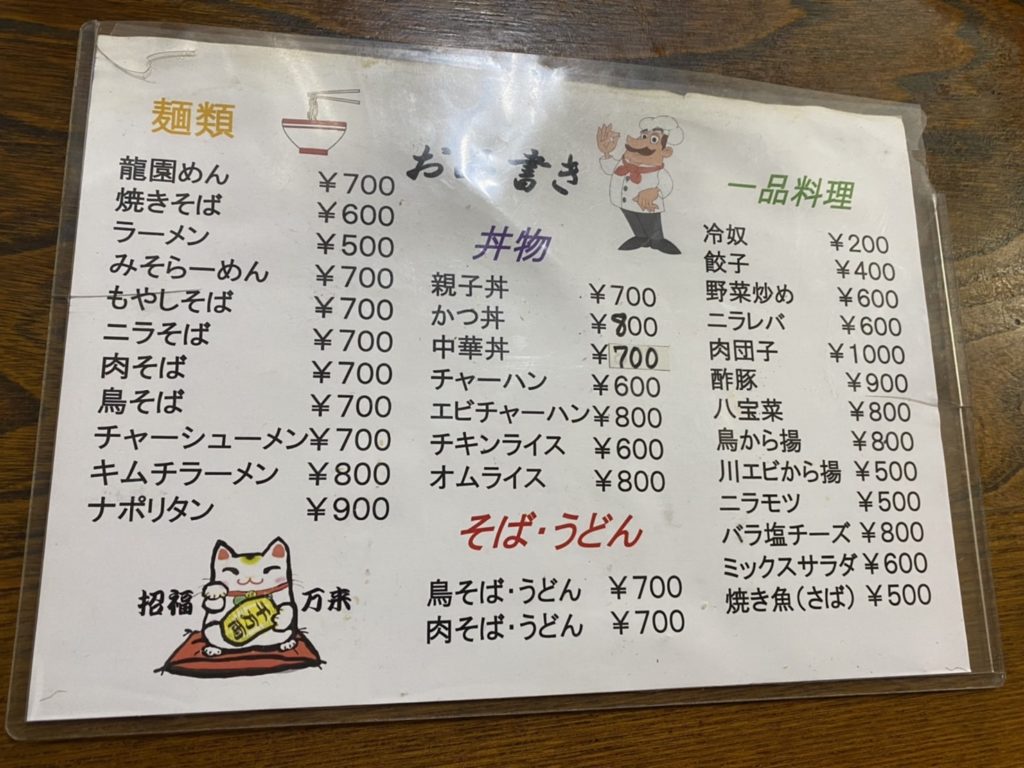 麺類
龍園めん ¥700
焼きそば ¥600
ラーメン ¥500
みそらーめん ¥700
もやしそば ¥700
ニラそば ¥700
肉そば ¥700
鳥そば ¥700
チャーシューメン ¥700
キムチラーメン ¥800
ナポリタン ¥900
招福 万来
千万両
お 書き
丼物
親子丼 ¥700
かつ丼 ¥800
中華丼 ¥700
チャーハン ¥600
エビチャーハン ¥800
チキンライス ¥600
オムライス ¥800
そば・うどん
鳥そば・うどん ¥700
肉そば・うどん ¥700
一品料理
冷奴 ¥200
餃子 ¥400
野菜炒め ¥600
ニラレバ ¥600
肉団子 ¥1000
酢豚 ¥900
八宝菜 ¥800
鳥から揚 ¥800
川エビから揚 ¥500
ニラモツ ¥500
バラ塩チーズ ¥800
ミックスサラダ ¥600
焼き魚(さば) ¥500